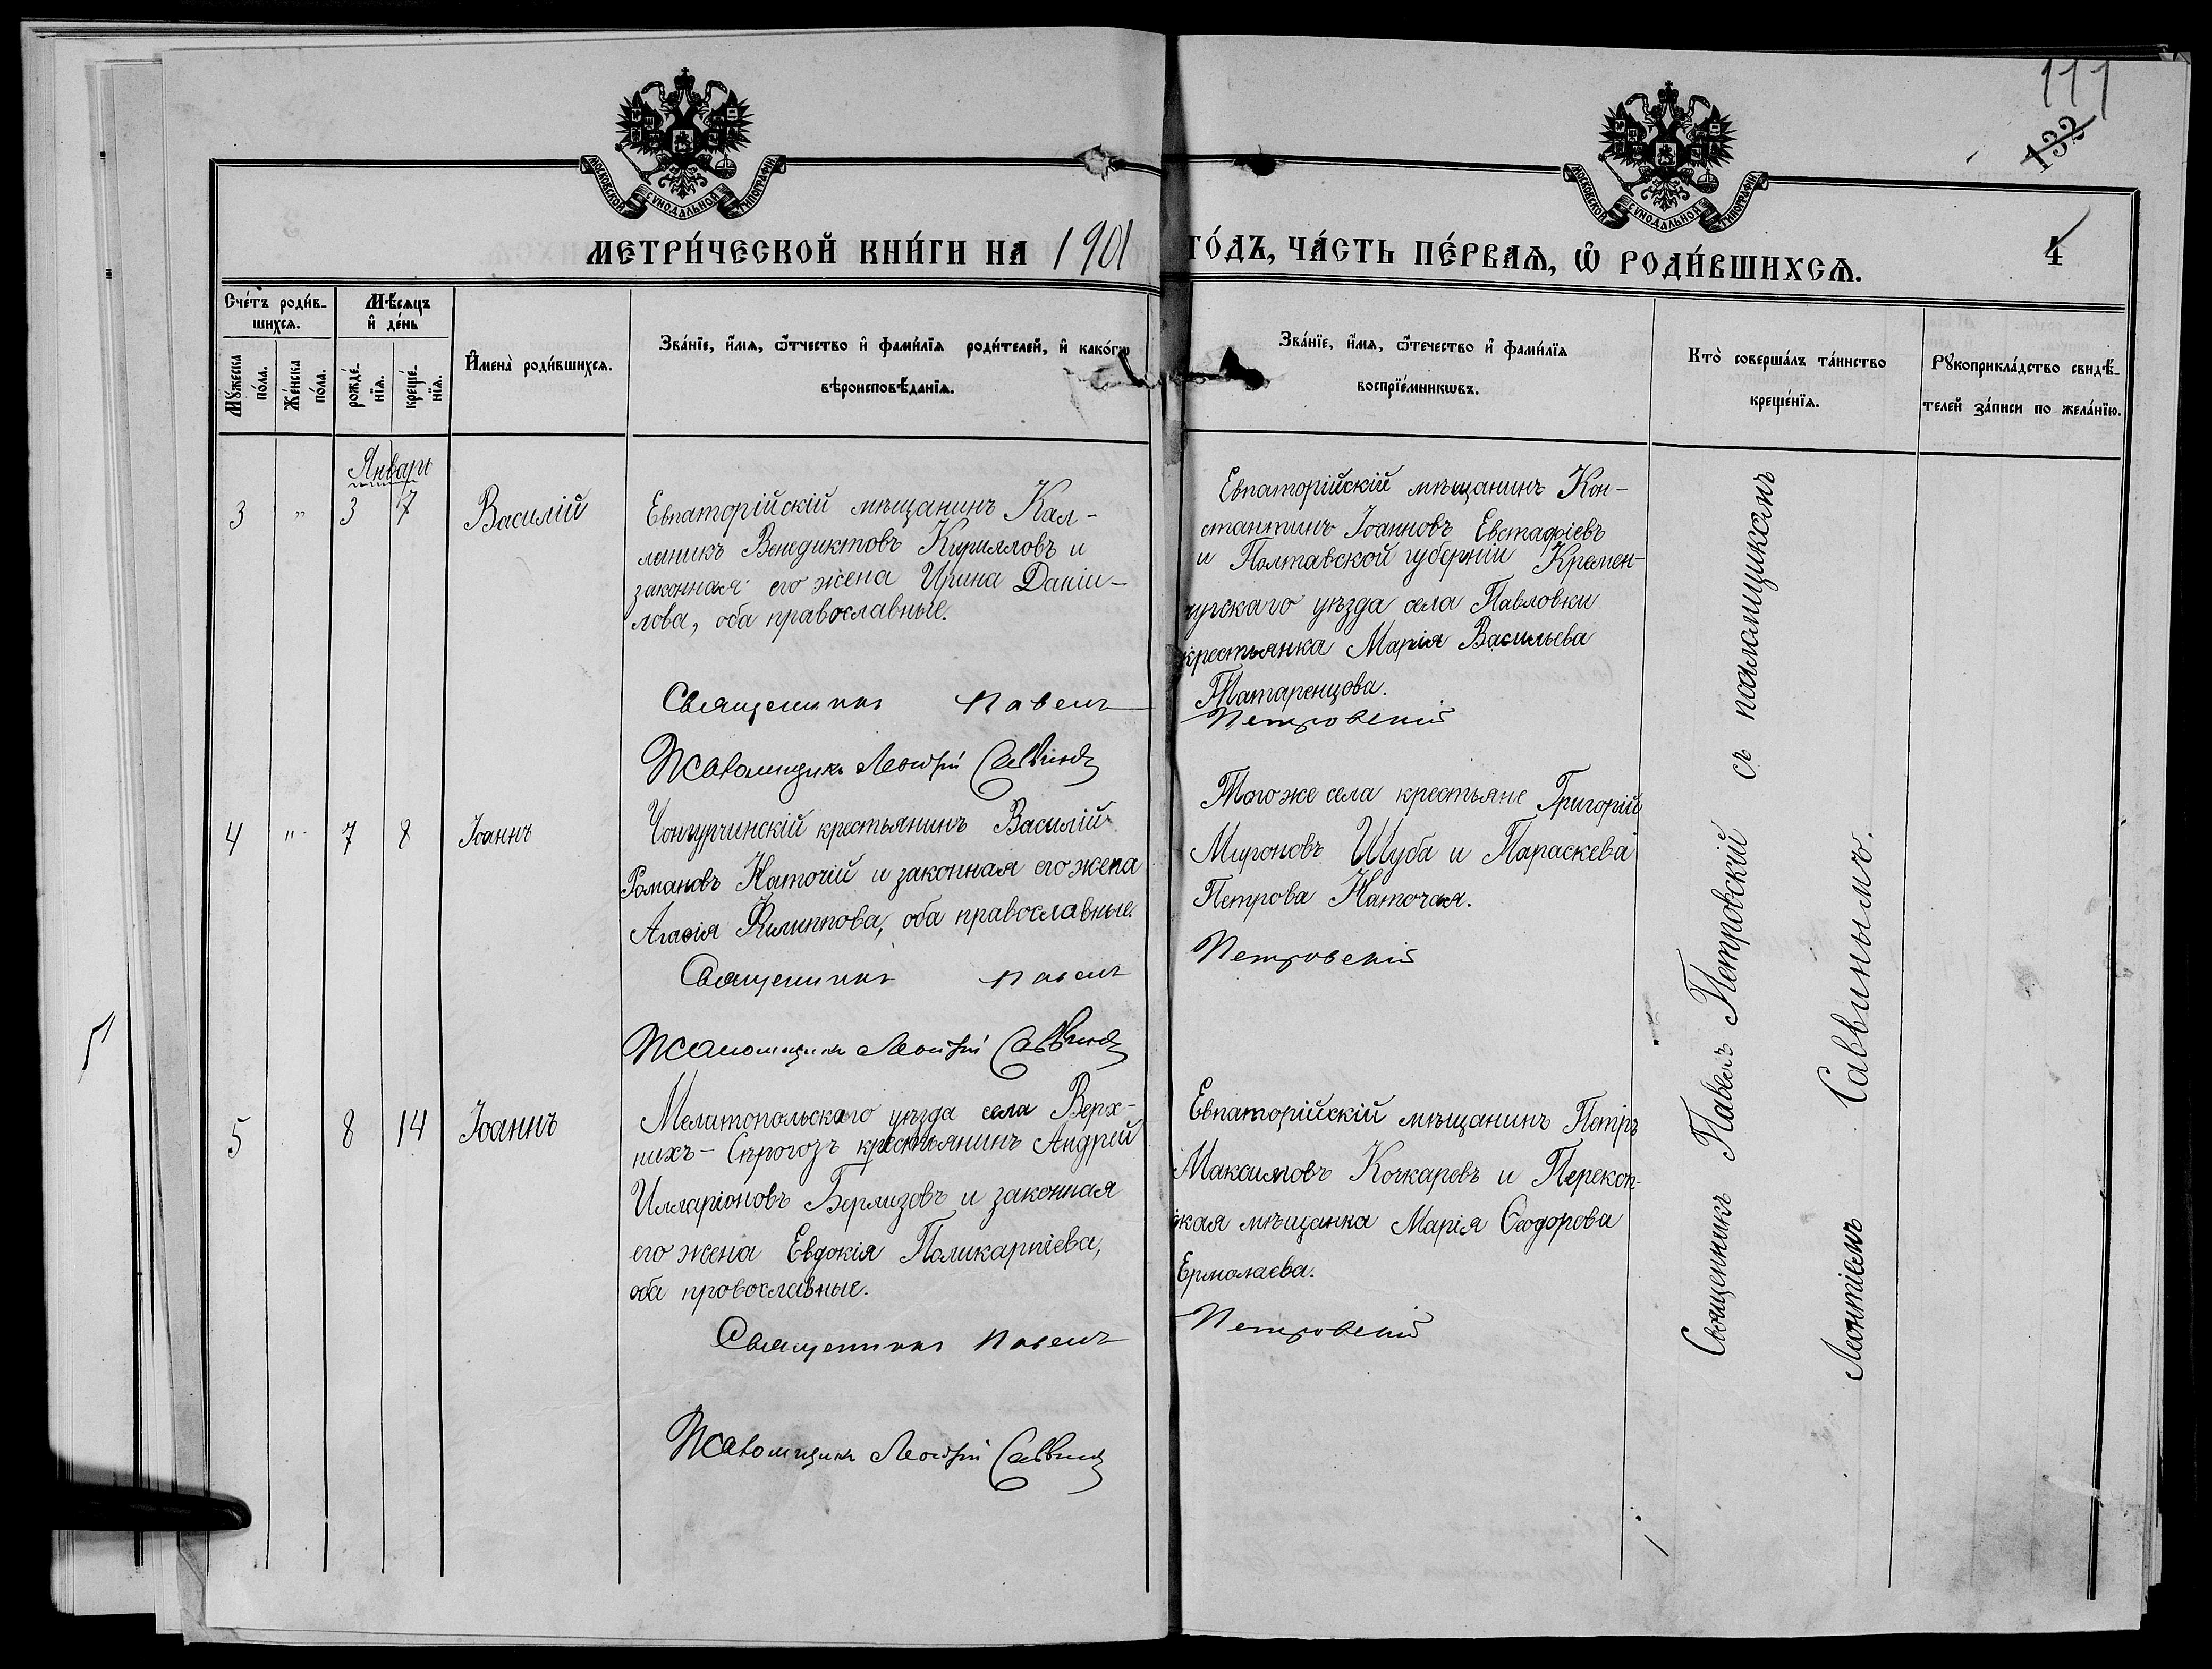 111
132
МОСКОВСКОЙ СѴНОДАЛЬНОЙ ТИПОГРАФІИ
МОСКОВСКОЙ СѴНОДАЛЬНОЙ ТИПОГРАФІИ
МЕТРИ́ЧЕСКОЙ КНИ́ГИ НА 1901 ГО́ДЪ, ЧА́СТЬ ПЕ́РВАѦ, Ѡ҆ РОДИ́ВШИХСѦ.
4
Сче́тъ роди́в-
шихсѧ.
Мꙋ́жеска
по́ла.
Же́нска
по́ла.
Мѣ́сѧцъ
и҆ де́нь
рожде́-
нїѧ.
креще́-
нїѧ.
И҆мена̀ роди́вшихсѧ.
Зва́нїе, и҆́мѧ, ѻ҆́тчество и҆ фами́лїѧ роди́телей, и҆ како́гѡ
вѣроисповѣ́данїѧ.
Зва́нїе, и҆́мѧ, ѻ҆́течество и҆ фами́лїѧ
воспрїе́мникѡвъ.
Кто̀ соверша́лъ та́инство
креще́нїѧ.
Рꙋкоприкла́дство свидѣ́-
телей за́писи по жела́нїю.
Январь
3 " 3 7 Василій
Евпаторійскій мѣщанинъ Кал-
линикъ Венедиктовъ Кирилловъ и
законная его жена Ирина Даніи-
лова, оба православные.
Евпаторійскій мѣщанинъ Кон-
стантинъ Іоанновъ Евстафіевъ
и Полтавской губерніи Кремен-
чугскаго уѣзда села Павловки
крестьянка Марія Васильева
Татаренцова.
Священникъ Павелъ Петровскій
Псаломщикъ Леонтій Саввинъ
4 " 7 8 Іоаннъ
Чонгурчинскій крестьянинъ Василій
Романовъ Наточій и законная его жена
Агафія Филиппова, оба православные.
Того же села крестьяне Григорій
Мироновъ Шуба и Параскева
Петрова Наточая.
Священникъ Павелъ Петровскій
Псаломщикъ Леонтій Саввинъ
5 8 14 Іоаннъ
Мелитопольскаго уѣзда села Верх-
нихъ-Сѣрогозъ крестьянинъ Андрей
Илларіоновъ Берлизовъ и законная
его жена Евдокія Поликарпіева,
оба православные.
Евпаторійскій мѣщанинъ Петръ
Максимовъ Кочкаревъ и Перекоп-
ская мѣщанка Марія Ѳеодорова
Ермолаева.
Священникъ Павелъ Петровскій
Псаломщикъ Леонтій Саввинъ
Священникъ Павелъ Петровскій съ псаломщикомъ
Леонтіемъ Саввинымъ.